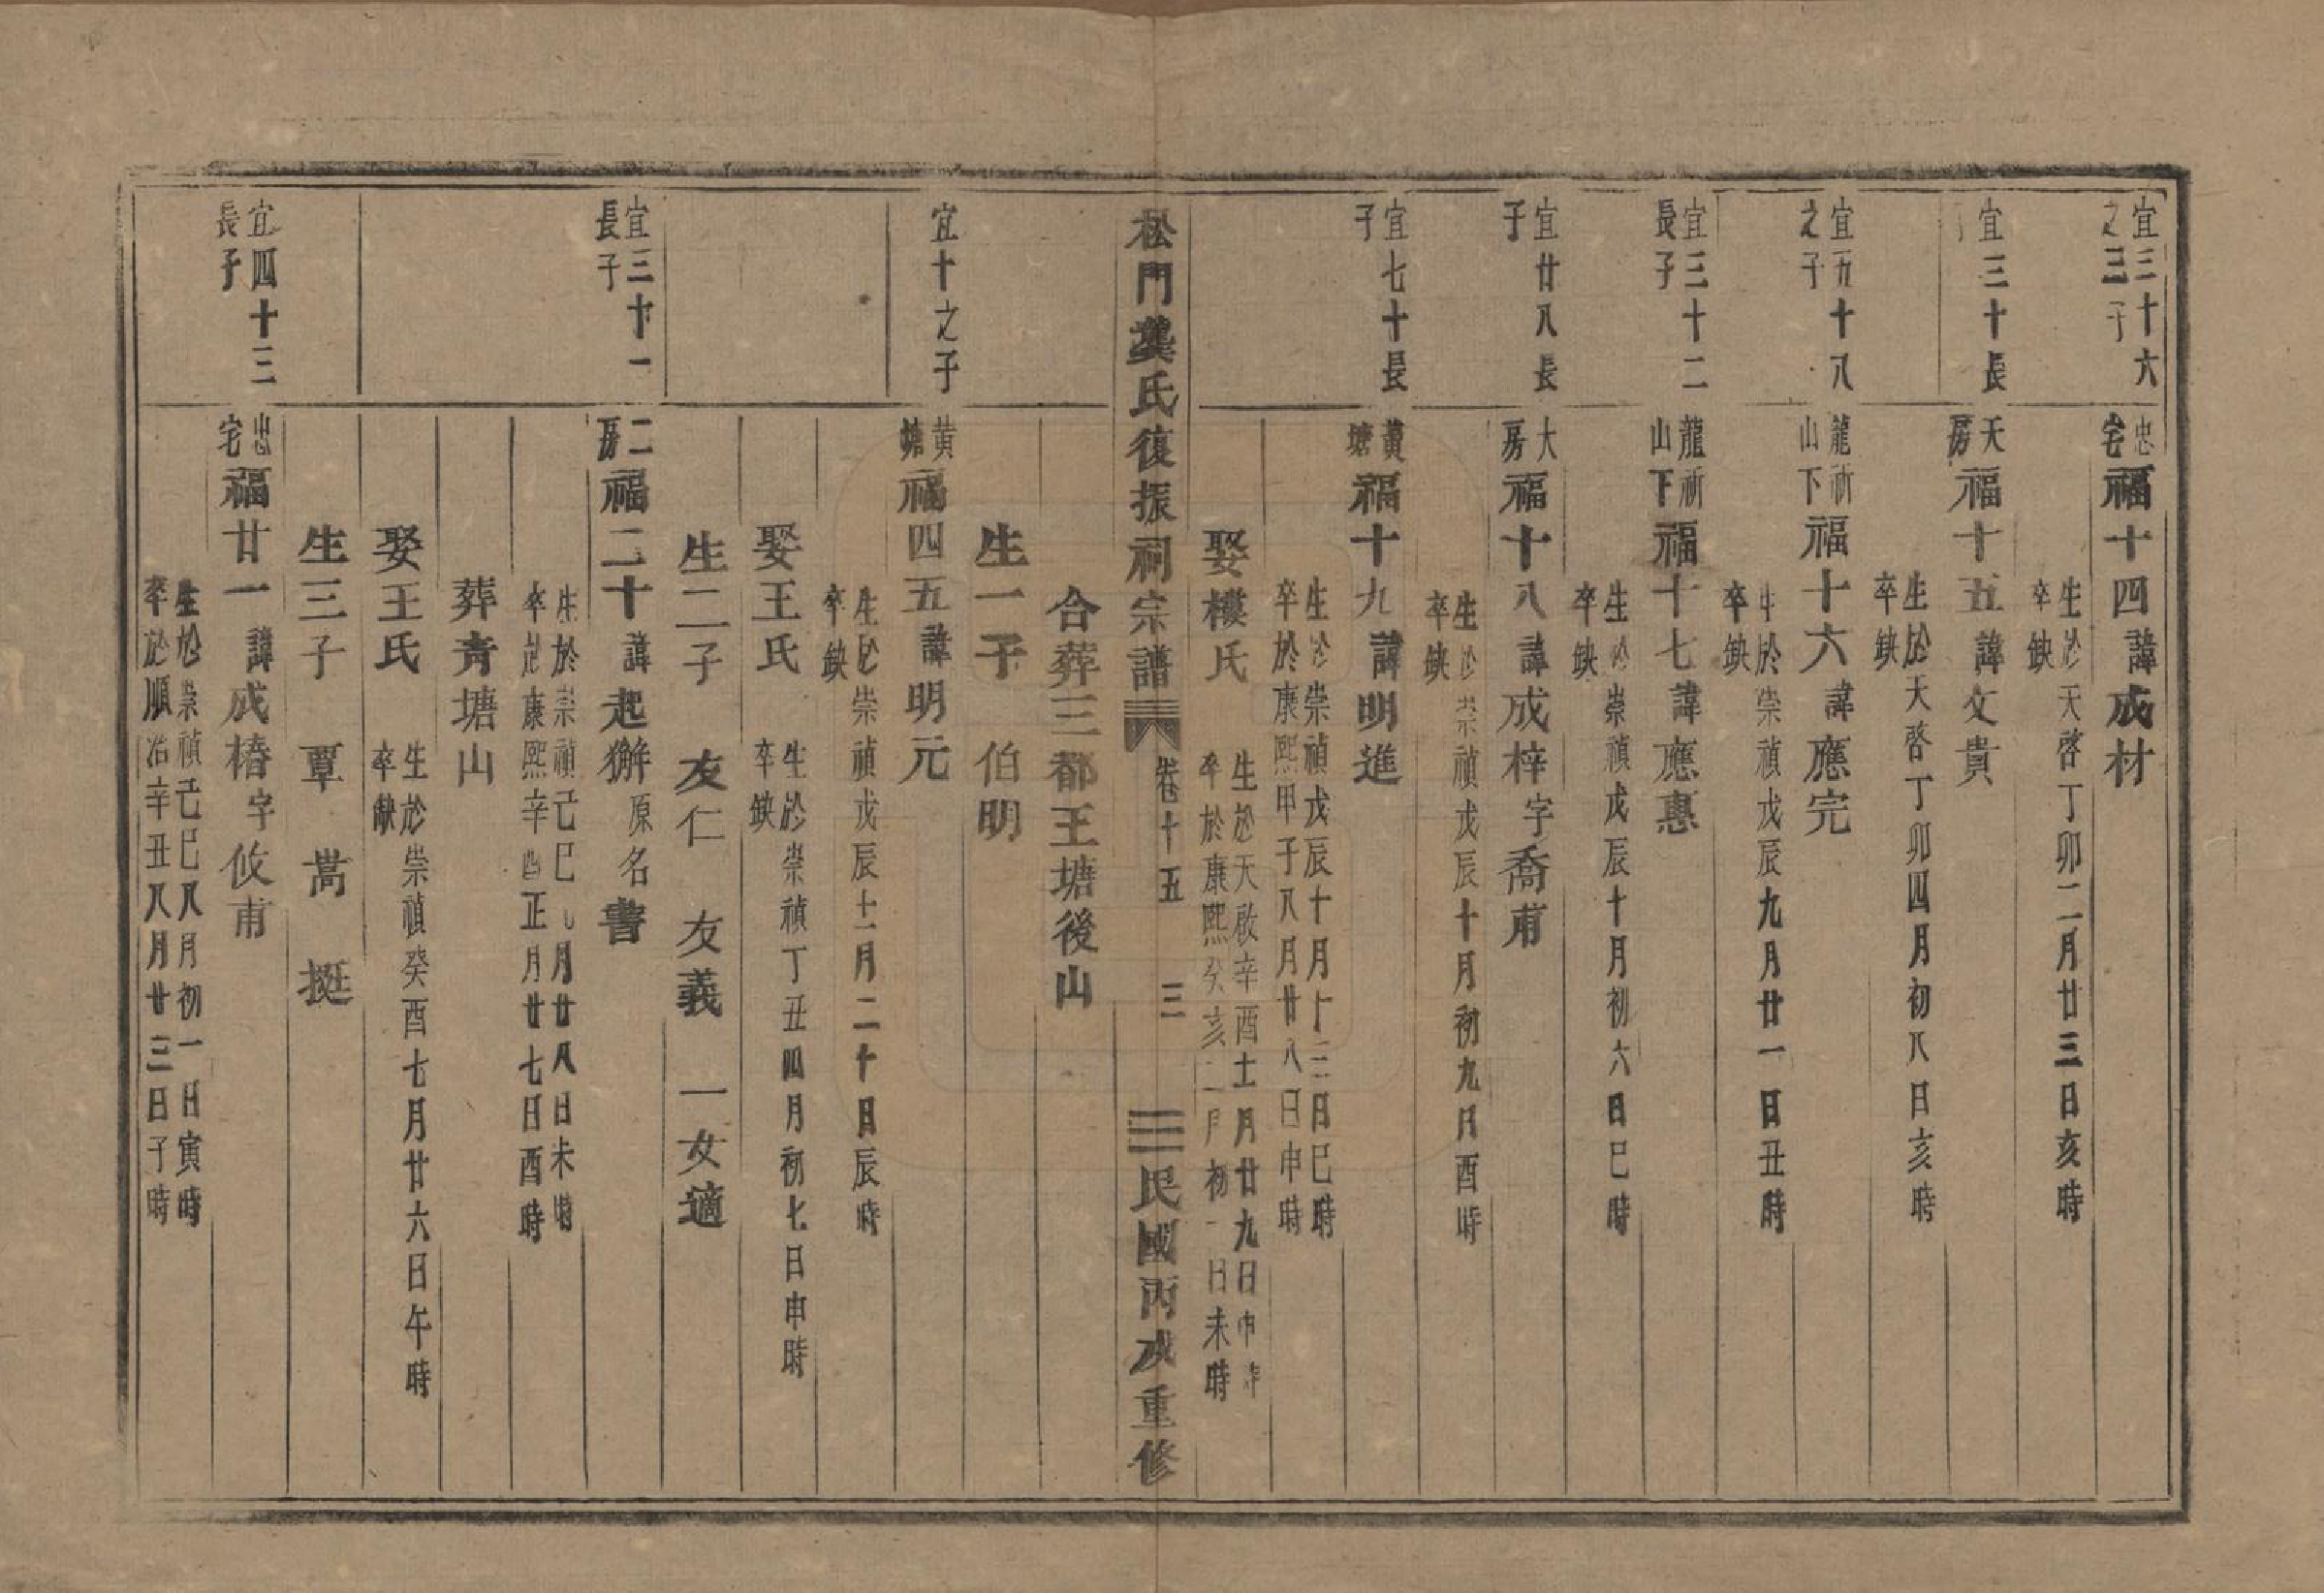 宜三十六
之三子
忠宅福十四諱成材
生於天啓丁卯二月廿三日亥時
卒缺
宜三十長
天房福十五諱文貴
生於天啓丁卯四月初八日亥時
卒缺
宜五十八
之子
龍祈山下福十六諱應完
生於崇禎戊辰九月廿一日丑時
卒缺
宜三十二
長子
龍祈山下福十七諱應惠
生於崇禎戊辰十月初六日巳時
卒缺
宜廿八長
子
大房福十八諱成梓字喬甫
生於崇禎戊辰十月初九日酉時
卒缺
宜七十長
子
黄塘福十九諱明進
生於崇禎戊辰十月十三日巳時
卒於康熙甲子八月廿八日申時
娶樓氏
生於天啟辛酉十一月廿九日申時
卒於康熙癸亥二月初一日未時
松門龔氏復振祠宗譜 卷十五 三 民國丙戌重修
合葬三都王塘後山
生一子 伯明
宜十之子
黄塘福四五諱明元
生於崇禎戊辰十一月二十日辰時
卒缺
娶王氏
生於崇禎丁丑四月初七日申時
卒缺
生二子 友仁 友義 一女適
宜三十一
長子
二房福二十諱起獬原名書
生於崇禎己巳 月廿八日未時
卒於康熙辛酉正月廿七日酉時
葬青塘山
娶王氏
生於崇禎癸酉七月廿六日午時
卒缺
生三子 覃 暠 挺
宜四十三
長子
忠宅福廿一諱成椿字攸甫
生於崇禎己巳八月初一日寅時
卒於順治辛丑八月廿三日子時